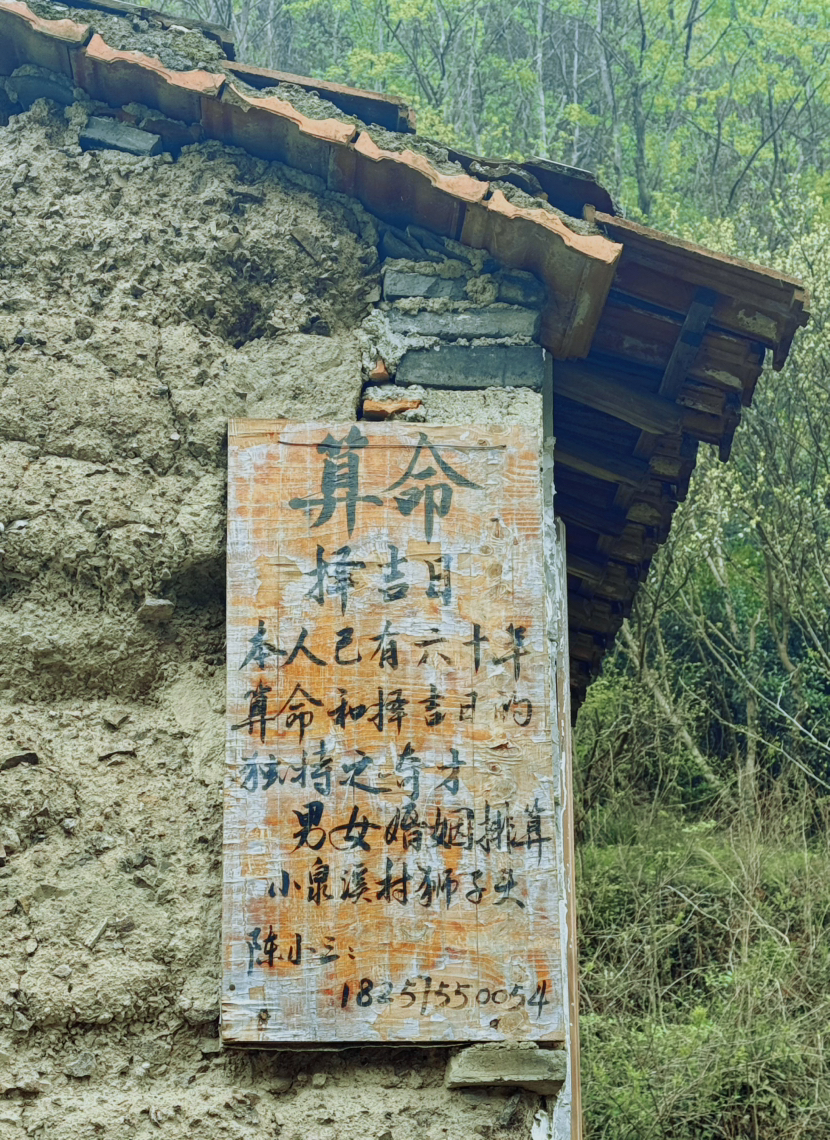 算命
择吉日
本人已有六十年
算命和择吉日的
独特之奇才
男女婚姻排算
小泉溪村狮子头
陈小三:
18251550054